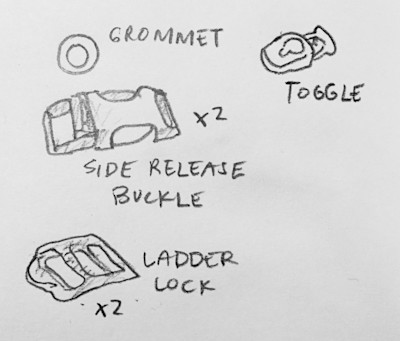 GROMMET
TOGGLE
x2
SIDE RELEASE
BUCKLE
LADDER
LOCK
x2